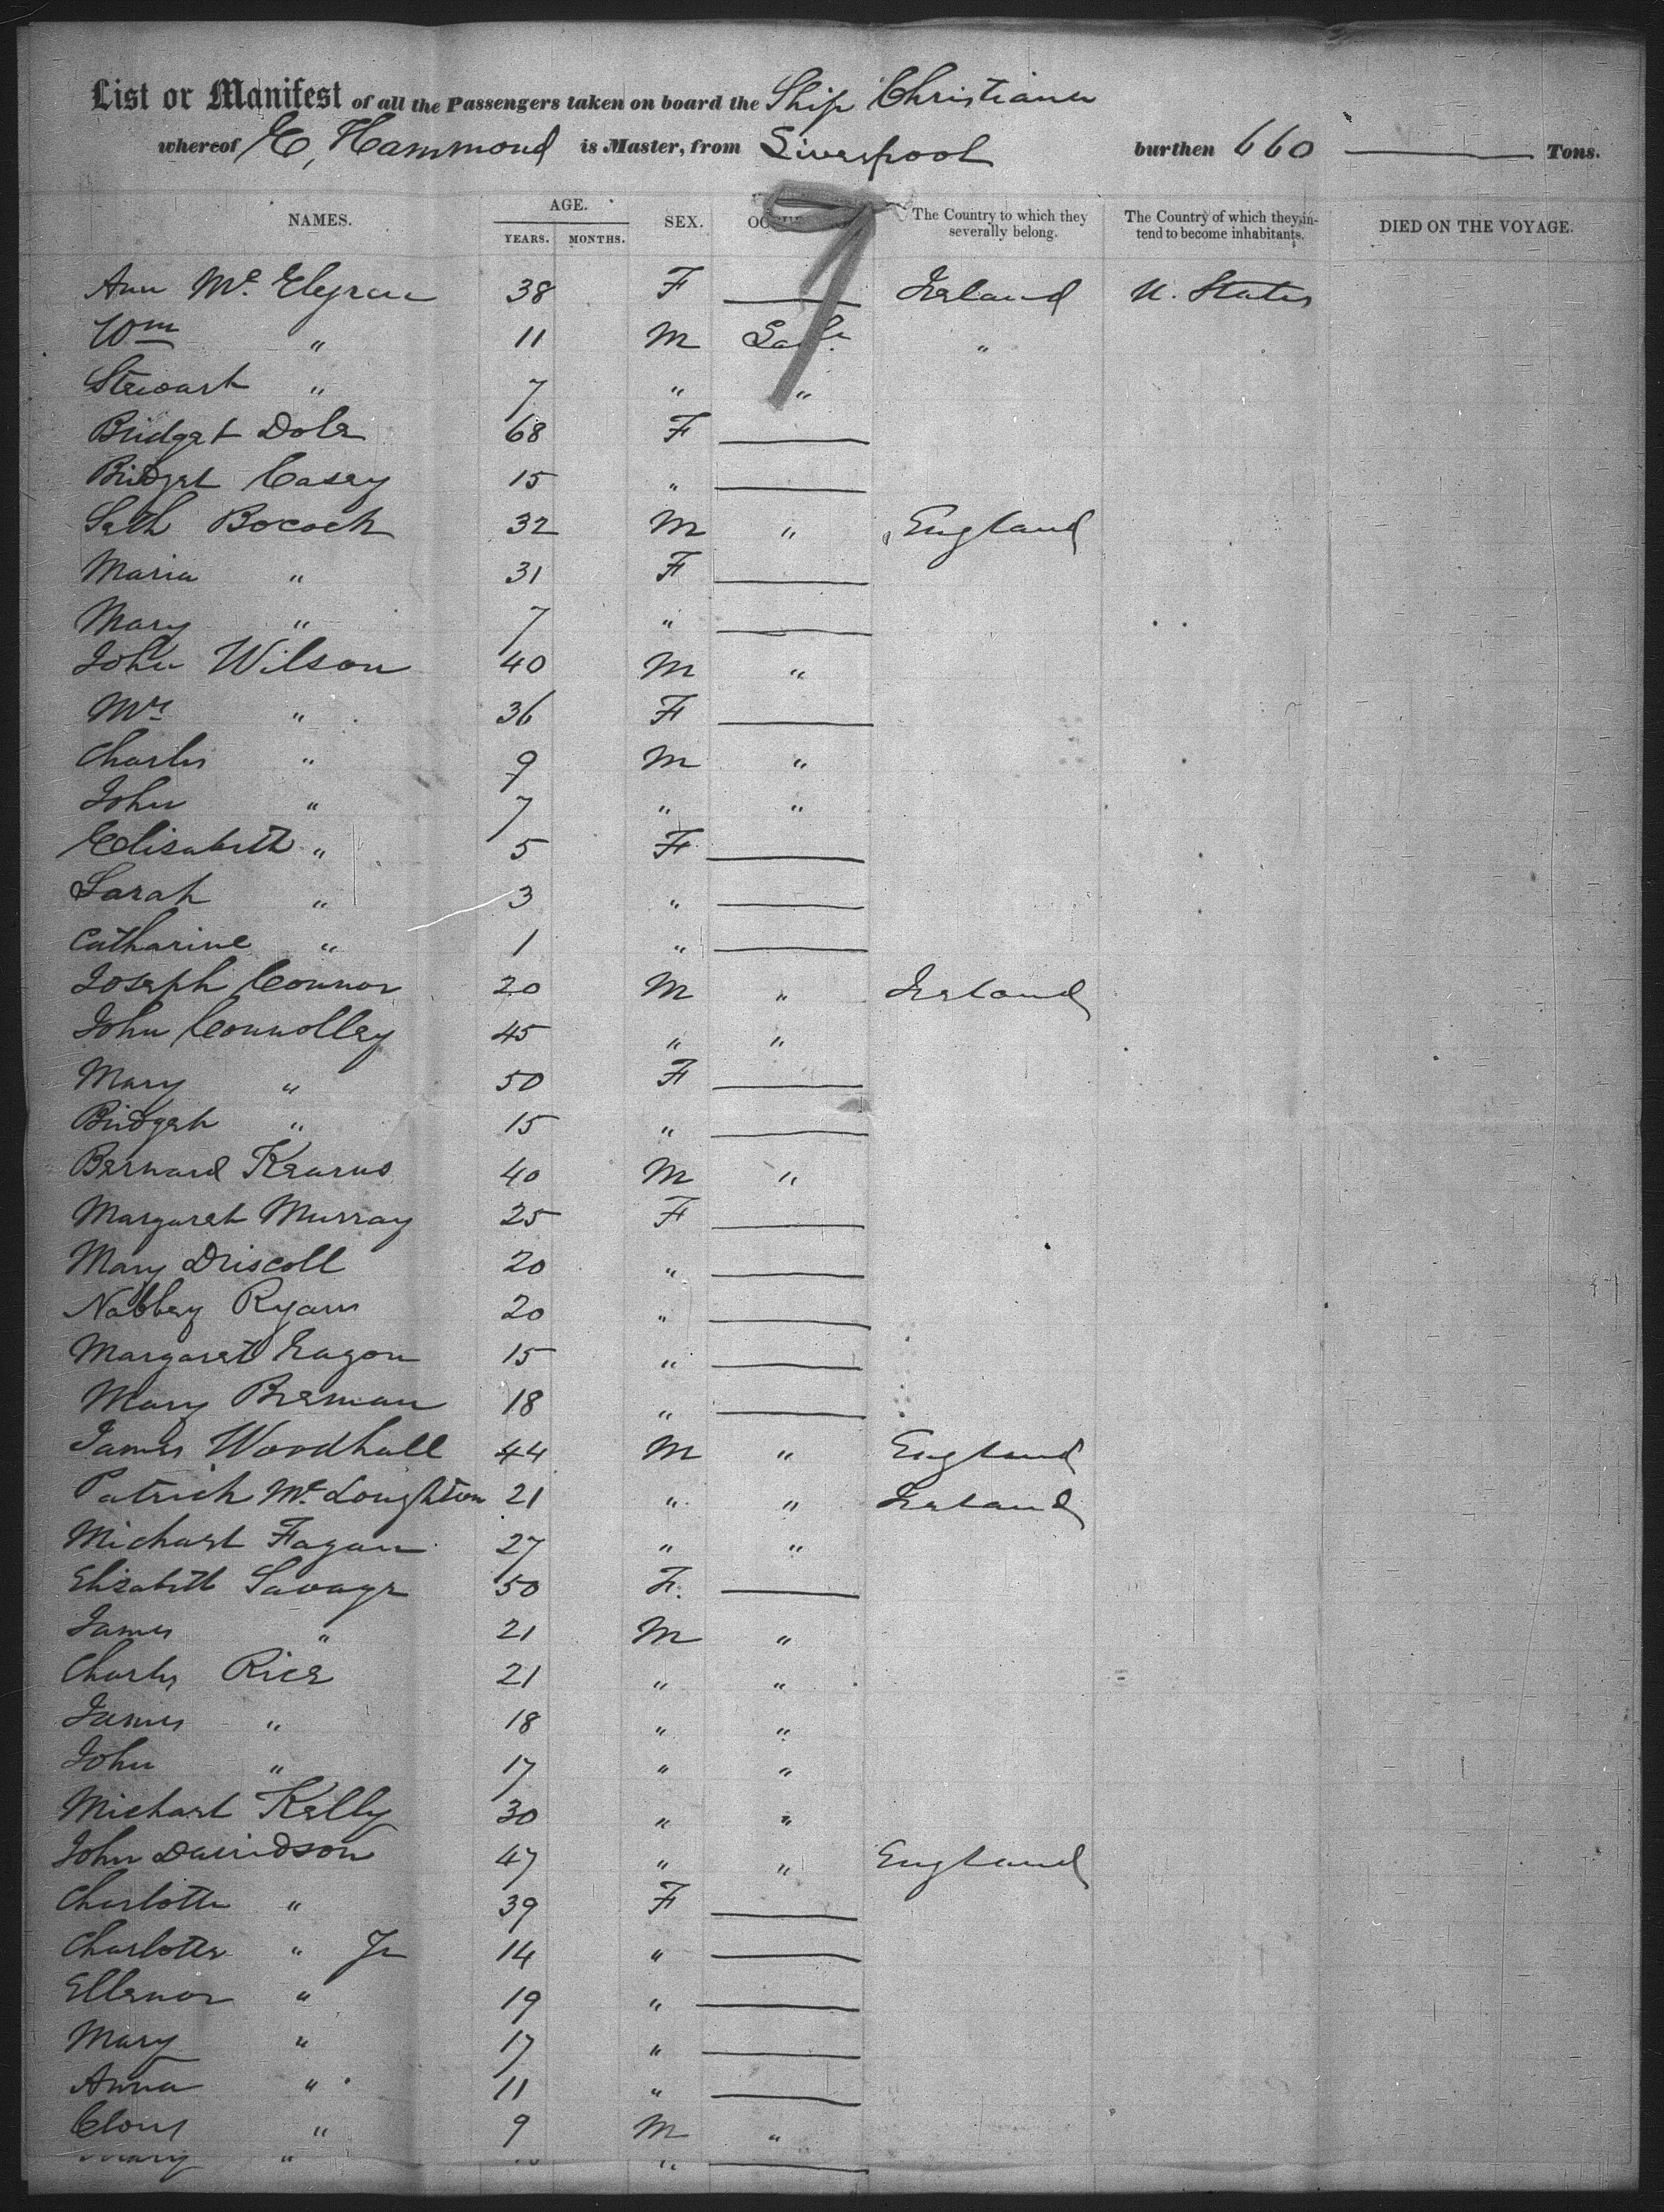 List or Manifest of all the Passengers taken on board the Ship Christiana
whereof E, Hammond is Master, from Liverpool burthen 660 Tons.
NAMES. AGE. YEARS. MONTHS. SEX. The Country to which they severally belong. The Country of which they intend to become inhabitants. DIED ON THE VOYAGE.
Ann Mc 38 F — Ireland U. States
Wm " 11 M Lab. "
Stewart " 7 " "
Bridget Dole 68 F —
Bridget Casey 15 " —
Seth Bocock 32 M " England
Maria " 31 F —
Mary " 7 " —
John Wilson 40 M "
Mrs " 36 F —
Charles " 9 M "
John " 7 " "
Elisabeth " 5 F —
Sarah " 3 " —
Catharine " 1 " —
Joseph Connor 20 M " Ireland
John Connolley 45 " "
Mary " 50 F —
Bridget " 15 " —
Bernard Kearns 40 M "
Margaret Murray 25 F —
Mary Driscoll 20 " —
Nabbey Ryan 20 " —
Margaret Eagon 15 " —
Mary Breman 18 " —
James Woodhall 44 M " England
Patrick Mc Loughton 21 " " Ireland
Michael Fagan 27 " "
Elizabeth Savage 50 F. —
James " 21 M "
Charles Rice 21 " "
James " 18 " "
John " 17 " "
Michael Kelly 30 " "
John Davidson 47 " " England
Charlotte " 39 F —
Charlotte " Jr 14 " —
Ellenor " 19 " —
Mary " 17 " —
Anna " 11 " —
" 9 M "
Mary " " —